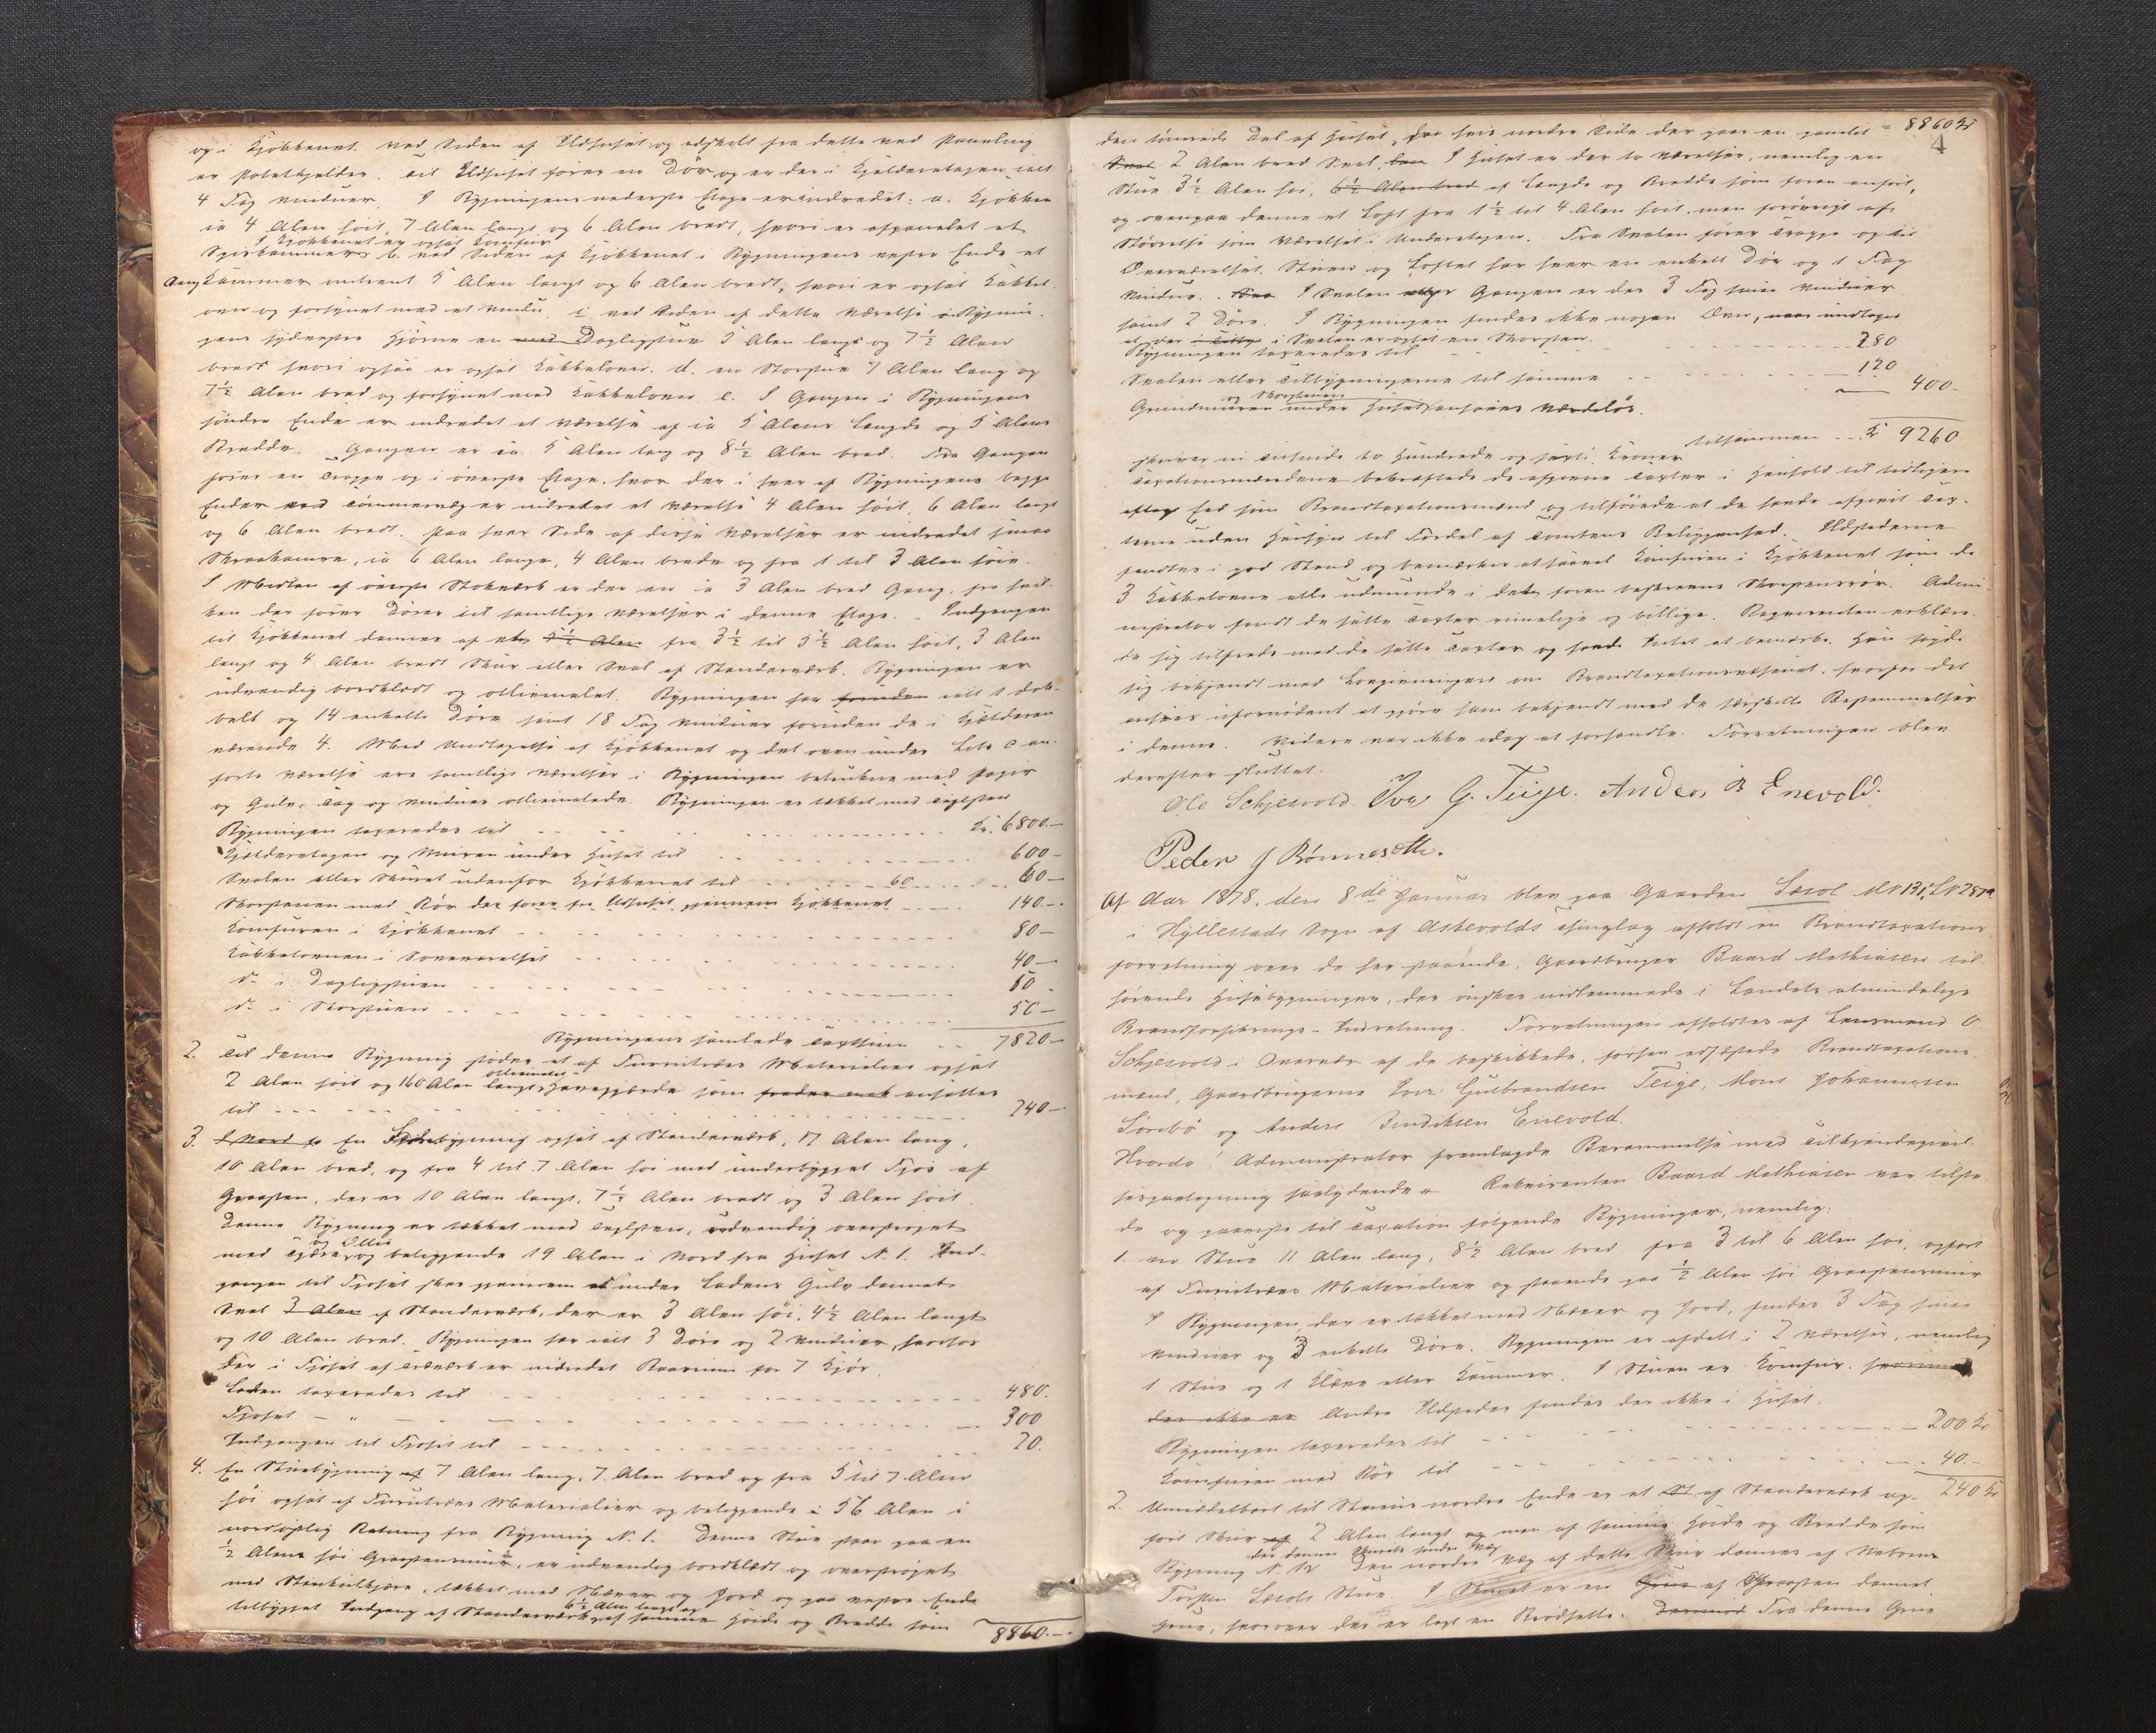 og i Kjøkkenet. Ved Siden af Ildhuset og adskilt fra dette ved Paneling
er Potetkjelder. Til Ildhuset fører en Dør og er der i Kjelderetagen ialt
4 Fag Vinduer. I Bygningens nederste Etage er indredet: a. Kjøkken
ca 4 Alen høit, 7 Alen langt og 6 Alen bredt, hvori er afpanelet et
I Kjøkkenet er opsat Komfur
Spiskammer b. ved Siden af Kjøkkenet i Bygningens vestre Ende et
Kammer omtrent 5 Alen langt og 6 Alen bredt, hvori er opsat Kakkel-
ovn og forsynet med et Vindu. c ved Siden af dette Værelse i Bygnin-
gens sydvestre Hjørne en Dagligstue 9 Alen lang og 7½ Alen
bred hvori ogsaa er opsat Kakkelovn. d. en Storstue 7 Alen lang og
7½ Alen bred og forsynet med Kakkelovn. e. I Gangen i Bygningens
søndre Ende er indredet et Værelse af ca 5 Alens Længde og 5 Alens
Bredde. Gangen er ca 5 Alen lang og 8½ Alen bred. Fra Gangen
fører en Trappe op i øverste Etage, hvor der i hver af Bygningens begge
Ender ved Tømmervæg er indredet et Værelse 4 Alen høit, 6 Alen langt
og 6 Alen bredt. Paa hver Side af disse Værelser er indredet smaa
Skraakamre, ca 6 Alen lange, 4 Alen brede og fra 1 til 3 Alen høie.
I Midten af øverste Stokværk er der en ca 3 Alen bred Gang, fra hvil-
ken der fører Døre til samtlige Værelser i denne Etage. Indgangen
til Kjøkkenet dannes af et fra 3½ til 5½ Alen høit, 3 Alen
langt og 4 Alen bredt Skur eller Sval af Standerværk. Bygningen er
udvendig bordklædt og oliemalet. Bygningen har ialt 1 dob-
belt og 14 enkelte Døre samt 18 Fag Vinduer foruden de i Kjelderen
værende 4. Med Undtagelse af Kjøkkenet og det oven under Litr c an-
førte Værelse ere samtlige Værelser i Bygningen betrukne med Papir
og Gulv, Tag og Vinduer oliemalede. Bygningen er tækket med Teglsten
Bygningen taxeredes til Kr. 6800.—
Kjelderetagen og Muren under Huset til 600 —
Svalen eller Skuret udenfor Kjøkkenet til 60 60 —
Skorstenen med Rør der fører fra Ildhuset gjennem Kjøkkenet 140.—
Komfuren i Kjøkkenet 80 —
Kakkelovnen i Soveværelset 40 —
do i Dagligstuen 50.
do i Storstuen 50 —
Bygningens samlede Taxtsum 7820.—
2. Til denne Bygning støder et af Furutræes Materialier opsat
oliemalet
2 Alen høit og 160 Alen langt Havegjerde som ansættes
til 240 —
3. En Ladebygning opsat af Standerværk, 17 Alen lang,
10 Alen bred, og fra 4 til 7 Alen høi med underbygget Fjøs af
Graasten, der er 10 Alen langt, 7½ Alen bredt og 3 Alen høit
Denne Bygning er tækket med Teglsten, udvendig overstrøget
og Ollie
med Tjære og beliggende 19 Alen i Nord fra Huset N. 1. Ind-
gangen til Fjøset sker gjennem et under Ladens Gulv dannet
Sval 3 Alen af Standerværk, der er 3 Alen høi, 4½ Alen langt
og 10 Alen bred. Bygningen har ialt 3 Døre og 2 Vinduer, hvorfor
der i Fjøset af Træværk er indredet Baasrum for 7 Kjør.
Laden taxeredes til 480.
Fjøset — " — 300
Indgangen til Fjøset til 20.
4. En Stuebygning 7 Alen lang, 7 Alen bred og fra 5 til 7 Alen
høi opsat af Furutræes Materialier og beliggende i 56 Alen i
nordøstlig Retning fra Bygning N. 1. Denne Stue staar paa en
½ Alens høi Graastensmur, er udvendig bordklædt og overstrøget
med Stenkultjære, tækket med Næver og Jord og paa vestre Ende
6½ Alen langt og
tilbygget Indgang af Standerværk af samme Høide og Bredde som
8860.—
4
den tømrede Del af Huset, paa hvis nordre Side der gaar en panelet = 8860 Kr
Sval 2 Alen bred Sval. I Huset er der to Værelser, nemlig en
Stue 3½ Alen høi, 6½ Alen bred af Længde og Bredde som foran anført,
og ovenpaa denne et Loft fra 1½ til 4 Alen høit, men forøvrigt af
Størrelse som Værelset i Underetagen. Fra Svalen fører Trappe op til
Overværelset. Stuen og Loftet har hver en enkelt Dør og 1 Fag
Vindue. I Svalen eller Gangen er der 3 Fag smaa Vinduer
samt 2 Døre. I Bygningen findes ikke nogen Ovn, men undtages
at der i Svalen er opsat en Skorsten.
Bygningen taxeredes til 280
Svalen eller Tilbygningerne til samme 120
400 —
og Skorstenen
Grundmuren under Huset ansaaes værdiløs.
tilsammen Kr 9260
skriver ni Tusinde to Hundrede og sexti Kroner
Taxationsmændene bekræftede de afgivne Taxter i Henhold til tidligere
aflagt Ed som Brandtaxationsmænd og tilføiede at de havde afgivet Tax-
terne uden Hensyn til Fordel af Tomtens Beliggenhed. Ildstederne
fandtes i god Stand og bemærkes at saavel Komfuren i Kjøkkenet som de
3 Kakkelovne alle udmunde i den foran beskrevne Skorstensrør. Admi-
nistrator fandt de satte Taxter rimelige og billige. Requirenten erklære-
de sig tilfreds med de satte Taxter og havde Intet at bemærke. Han sagde
sig bekjendt med Lovgivningen om Brandtaxationsvæsenet, hvorfor det
ansees ufornødent at gjøre ham bekjendt med de særskilte Bestemmelser
i denne. Videre var ikke idag at forhandle. Forretningen blev
derefter sluttet.
Ole Schjesvold. Iver G. Teige. Anders B Enevold.
Peder J Bønnesæth.
Af Aar 1878, den 8de Januar blev paa Gaarden Sæsol M No 131, L No 287a
i Hyllestads Sogn af Askevolds Thinglag afholdt en Brandtaxations-
forretning over de her staaende, Gaardbruger Baard Mathiasen til-
hørende Husebygninger, der ønskes indlemmede i Landets almindelige
Brandforsikrings-Indretning. Forretningen afholdtes af Lensmand O
Schjesvold i Overvær af de beskikkede, forhen edfæstede Brandtaxations-
mænd, Gaardbrugerne Iver Gulbrandsen Teige, Mons Johannesen
Sørebø og Anders Bendiksen Enevold.
Hvorda! Administrator fremlagde Berammelse med Tilkjendegivel-
sespaategning saalydende " Rekvirenten Baard Mathiasen var tilste-
de og paaviste til Taxation følgende Bygninger, nemlig:
1. en Stue 11 Alen lang, 8½ Alen bred fra 3 til 6 Alen høi, opført
af Furutræes Materialier og staaende paa ½ Alen høi Graastensmur
I Bygningen, der er tækket med Næver og Jord, findes 3 Fag smaa
Vinduer og 3 enkelte Døre. Bygningen er afdelt i 2 Værelser, nemlig
1 Stue og 1 Kleve eller Kammer. I Stuen er Komfur.
der ikke er Andre Ildsteder findes der ikke i Huset.
Bygningen taxeredes til 200 Kr
Komfuren med Rør til 40.—
240 Kr
2. Umiddelbart til Stuens nordre Ende er et af Standerværk op-
ført Skur 2 Alen langt men af samme Høide og Bredde som
der danner Skurets søndre Væg
Bygning N. 1. Den nordre Væg af dette Skur dannes af Naboens
Torsten Sæsols Stue. I Skuret er en af Graasten dannet
Grue, hvorover der er lagt en Brødhelle. Fra denne Grue